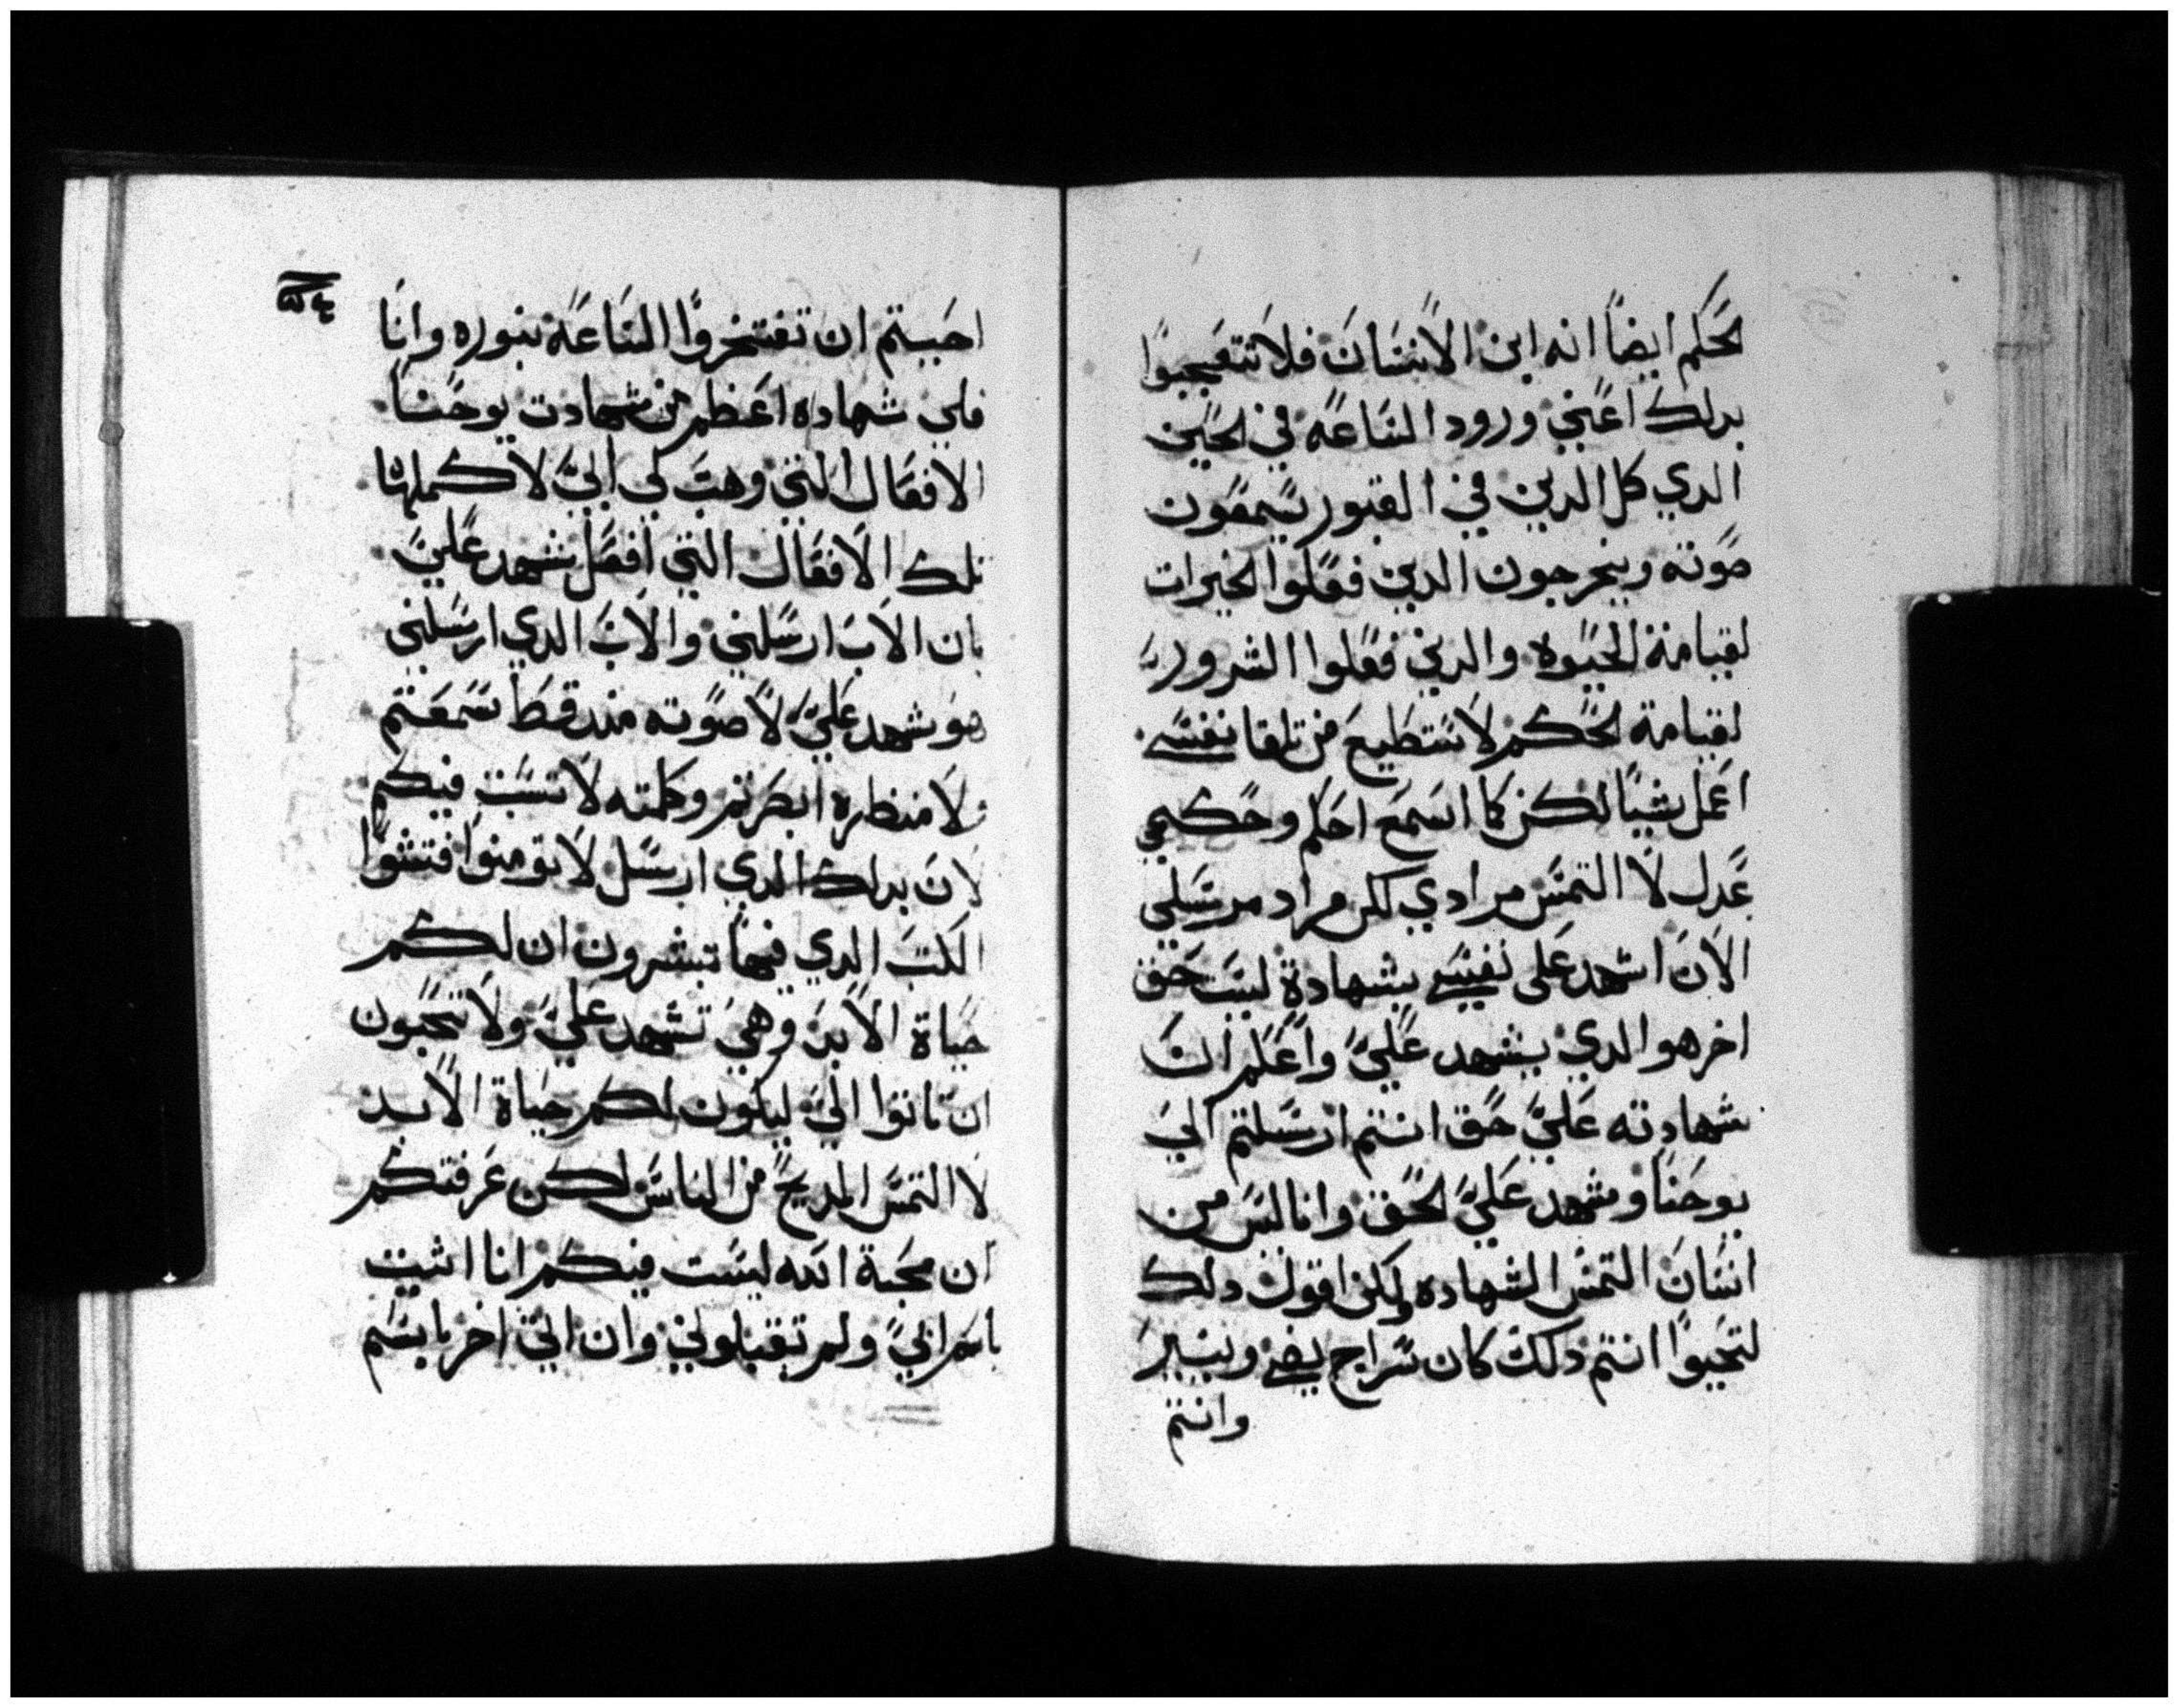 لحكم ايضاً انه ابن الانسان فلا تتعجبوا
بدلك اعني ورود الساعة في الحين
الدي كل الدين في القبور يسمعون
صوته ويخرجون الدين فعلوا الخيرات
لقيامة الحيوه والدين فعلوا الشرور
لقيامة الحكم لا ستطيع من تلقا نفسي
اعمل شيا لكن كما اسمع احكم وحكمي
عدل لا التمس مرادي لكن مراد مرسلي
الان اشهد على نفسي بشهادة ليست حق
اخر هو الدي يشهد علي واعلم ان
شهادته علي حق انتم ارسلتم الي
يوحنا وشهد علي الحق وانا لس من
انسان التمس الشهاده ولكن اقول دلك
لتحيوا انتم دلك كان سراج يضي وينير
وانتم
احببتم ان تفتخروا الساعة بنوره وانا
فلي شهاده اعظم من شهادت يوحنا
الافعال التي وهب لي ابي لاكملها
تلك الافعال التي افعل تشهد علي
بان الاب ارسلني والاب الدي ارسلني
هو شهد علي لا صوته مند قط سمعتم
ولا منظره ابصرتم وكلمته لا تتبت فيكم
لان بدلك الدي ارسل لا تومنوا فتشوا
الكتب الدي فيها تبشرون ان لكم
حياة الابد وهي تشهد علي ولا تحبون
ان تاتوا الي ليكون لكم حياة الابد
لا التمس المديح من الناس لكن عرفتكم
ان محبة الله ليست فيكم انا اتيت
باسم ابي ولم تقبلوني وان اتي اخر باسم